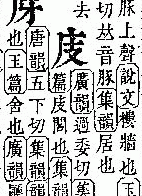 豚上聲說文樓牆也玉
切𠀤音豚集韻居也
去
庋
廣韻過委切集
篇庋閣也集韻
庌
唐韻五下切集韻
也玉篇舍也廣韻